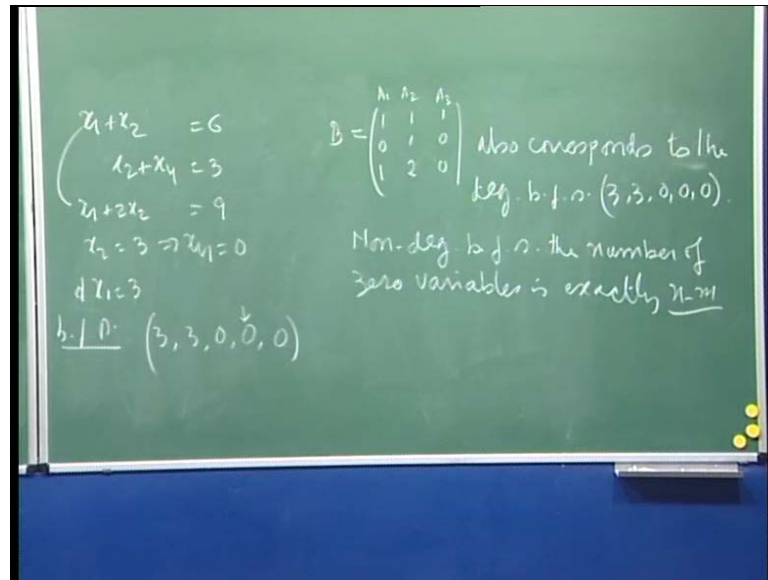 x₁+x₂ = 6
x₂+x₄ = 3
x₁+2x₂ = 9
x₂ = 3 ⇒ x₄ = 0
& x₁ = 3
b.f.s. (3, 3, 0, 0, 0)
A₁ A₂ A₃
B = ( 1 1 1
0 1 0
1 2 0 )
also corresponds to the
deg. b.f.s. (3, 3, 0, 0, 0).
Non-deg. b.f.s. the number of
zero variables is exactly n-m